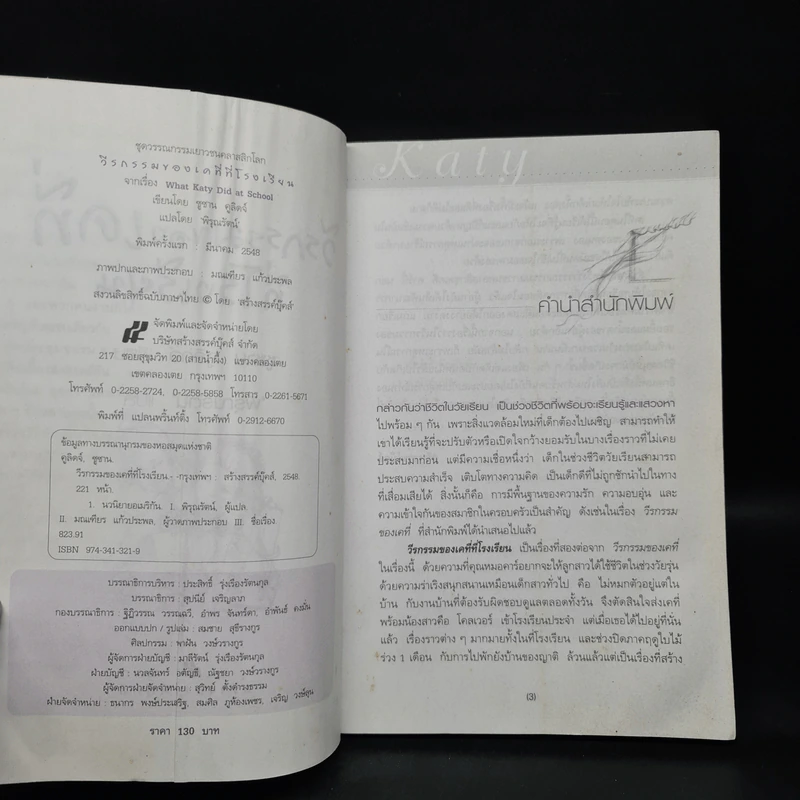 ชุดวรรณกรรมเยาวชนคลาสสิกโลก
วีรกรรมของเคที่ที่โรงเรียน
จากเรื่อง What Katy Did at School
เขียนโดย ซูซาน คูลิดจ์
แปลโดย 'พิรุณรัตน์'
พิมพ์ครั้งแรก : มีนาคม 2548
ภาพปกและภาพประกอบ : มณเฑียร แก้วประพล
สงวนลิขสิทธิ์ฉบับภาษาไทย © โดย 'สร้างสรรค์บุ๊คส์'
จัดพิมพ์และจัดจำหน่ายโดย
บริษัทสร้างสรรค์บุ๊คส์ จำกัด
217 ซอยสุขุมวิท 20 (สายน้ำผึ้ง) แขวงคลองเตย
เขตคลองเตย กรุงเทพฯ 10110
โทรศัพท์ 0-2258-2724, 0-2258-5858 โทรสาร 0-2261-5671
พิมพ์ที่ แปลนพริ้นท์ติ้ง โทรศัพท์ 0-2912-6670
ข้อมูลทางบรรณานุกรมของหอสมุดแห่งชาติ
คูลิดจ์, ซูซาน.
วีรกรรมของเคที่ที่โรงเรียน.- -กรุงเทพฯ : สร้างสรรค์บุ๊คส์, 2548.
221 หน้า.
1. นวนิยายอเมริกัน. I. พิรุณรัตน์, ผู้แปล.
II. มณเฑียร แก้วประพล, ผู้วาดภาพประกอบ III. ชื่อเรื่อง.
823.91
ISBN 974-341-321-9
บรรณาธิการบริหาร : ประสิทธิ์ รุ่งเรืองรัตนกุล
บรรณาธิการ : สุปนีย์ เจริญลาภ
กองบรรณาธิการ : ฐิฏิวรรณ วรรณฉวี, อำพร จันทร์ตา, อำพันธ์ คงมั่น
ออกแบบปก / รูปเล่ม : สมชาย สุธีรางกูร
ศิลปกรรม : พาฝัน วงษ์วรางกูร
ผู้จัดการฝ่ายบัญชี : มาลีรัตน์ รุ่งเรืองรัตนกุล
ฝ่ายบัญชี : นวลจันทร์ อตัญธี, ณัฐชยา วงษ์วรางกูร
ผู้จัดการฝ่ายจัดจำหน่าย : สุวิทย์ ตั้งดำรงธรรม
ฝ่ายจัดจำหน่าย : ธนากร พงษ์ประเสริฐ, สมศิล ภูท้องเพชร, เจริญ วงษ์สุน
ราคา 130 บาท
Katy
คำนำสำนักพิมพ์
กล่าวกันว่าชีวิตในวัยเรียน เป็นช่วงชีวิตที่พร้อมจะเรียนรู้และแสวงหา
ไปพร้อม ๆ กัน เพราะสิ่งแวดล้อมใหม่ที่เด็กต้องไปเผชิญ สามารถทำให้
เขาได้เรียนรู้ที่จะปรับตัวหรือเปิดใจกว้างยอมรับในบางเรื่องราวที่ไม่เคย
ประสบมาก่อน แต่มีความเชื่อหนึ่งว่า เด็กในช่วงชีวิตวัยเรียนสามารถ
ประสบความสำเร็จ เติบโตทางความคิด เป็นเด็กดีที่ไม่ถูกชักนำไปในทาง
ที่เสื่อมเสียได้ สิ่งนั้นก็คือ การมีพื้นฐานของความรัก ความอบอุ่น และ
ความเข้าใจกันของสมาชิกในครอบครัวเป็นสำคัญ ดังเช่นในเรื่อง วีรกรรม
ของเคที่ ที่สำนักพิมพ์ได้นำเสนอไปแล้ว
วีรกรรมของเคที่ที่โรงเรียน เป็นเรื่องที่สองต่อจาก วีรกรรมของเคที่
ในเรื่องนี้ ด้วยความที่คุณหมอคาร์อยากจะให้ลูกสาวได้ใช้ชีวิตในช่วงวัยรุ่น
ด้วยความร่าเริงสนุกสนานเหมือนเด็กสาวทั่วไป คือ ไม่หมกตัวอยู่แต่ใน
บ้าน กับงานบ้านที่ต้องรับผิดชอบดูแลตลอดทั้งวัน จึงตัดสินใจส่งเคที่
พร้อมน้องสาวคือ โคลเวอร์ เข้าโรงเรียนประจำ แต่เมื่อเธอได้ไปอยู่ที่นั่น
แล้ว เรื่องราวต่าง ๆ มากมายทั้งในที่โรงเรียน และช่วงปิดภาคฤดูใบไม้
ร่วง 1 เดือน กับการไปพักยังบ้านของญาติ ล้วนแล้วแต่เป็นเรื่องที่สร้าง
(3)